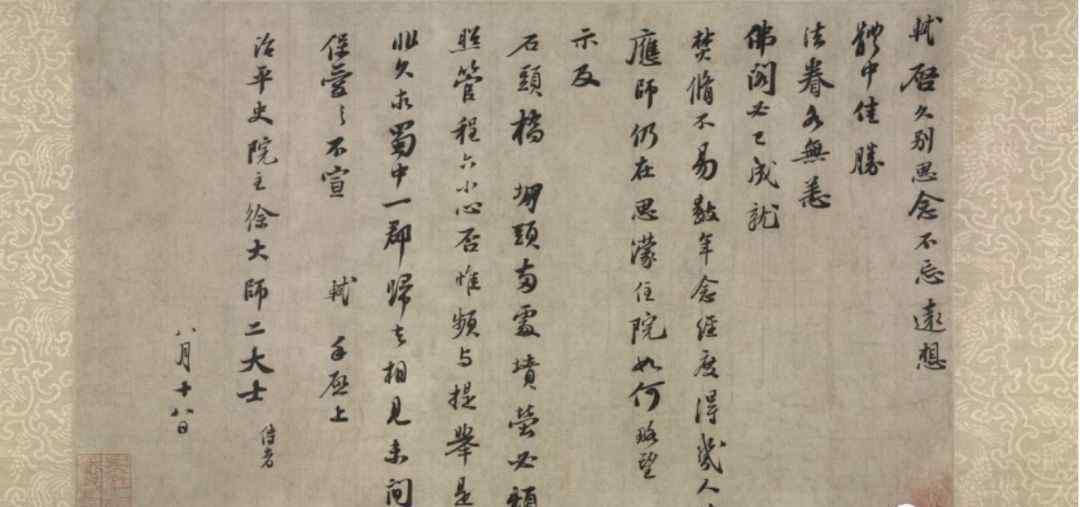 軾啓久别思念不忘遠想
體中佳勝
法眷各無恙
佛閣必已成就
焚脩不易數年念經度得幾人
應師仍在思濛住院如何略望
示及
石頭橋 堋頭兩處墳塋必煩
照管程六小心否惟頻与提舉是
非久求蜀中一郡歸去相見未間
保愛之不宣 軾手啓上
治平史院主徐大師二大士 侍者
八月十八日